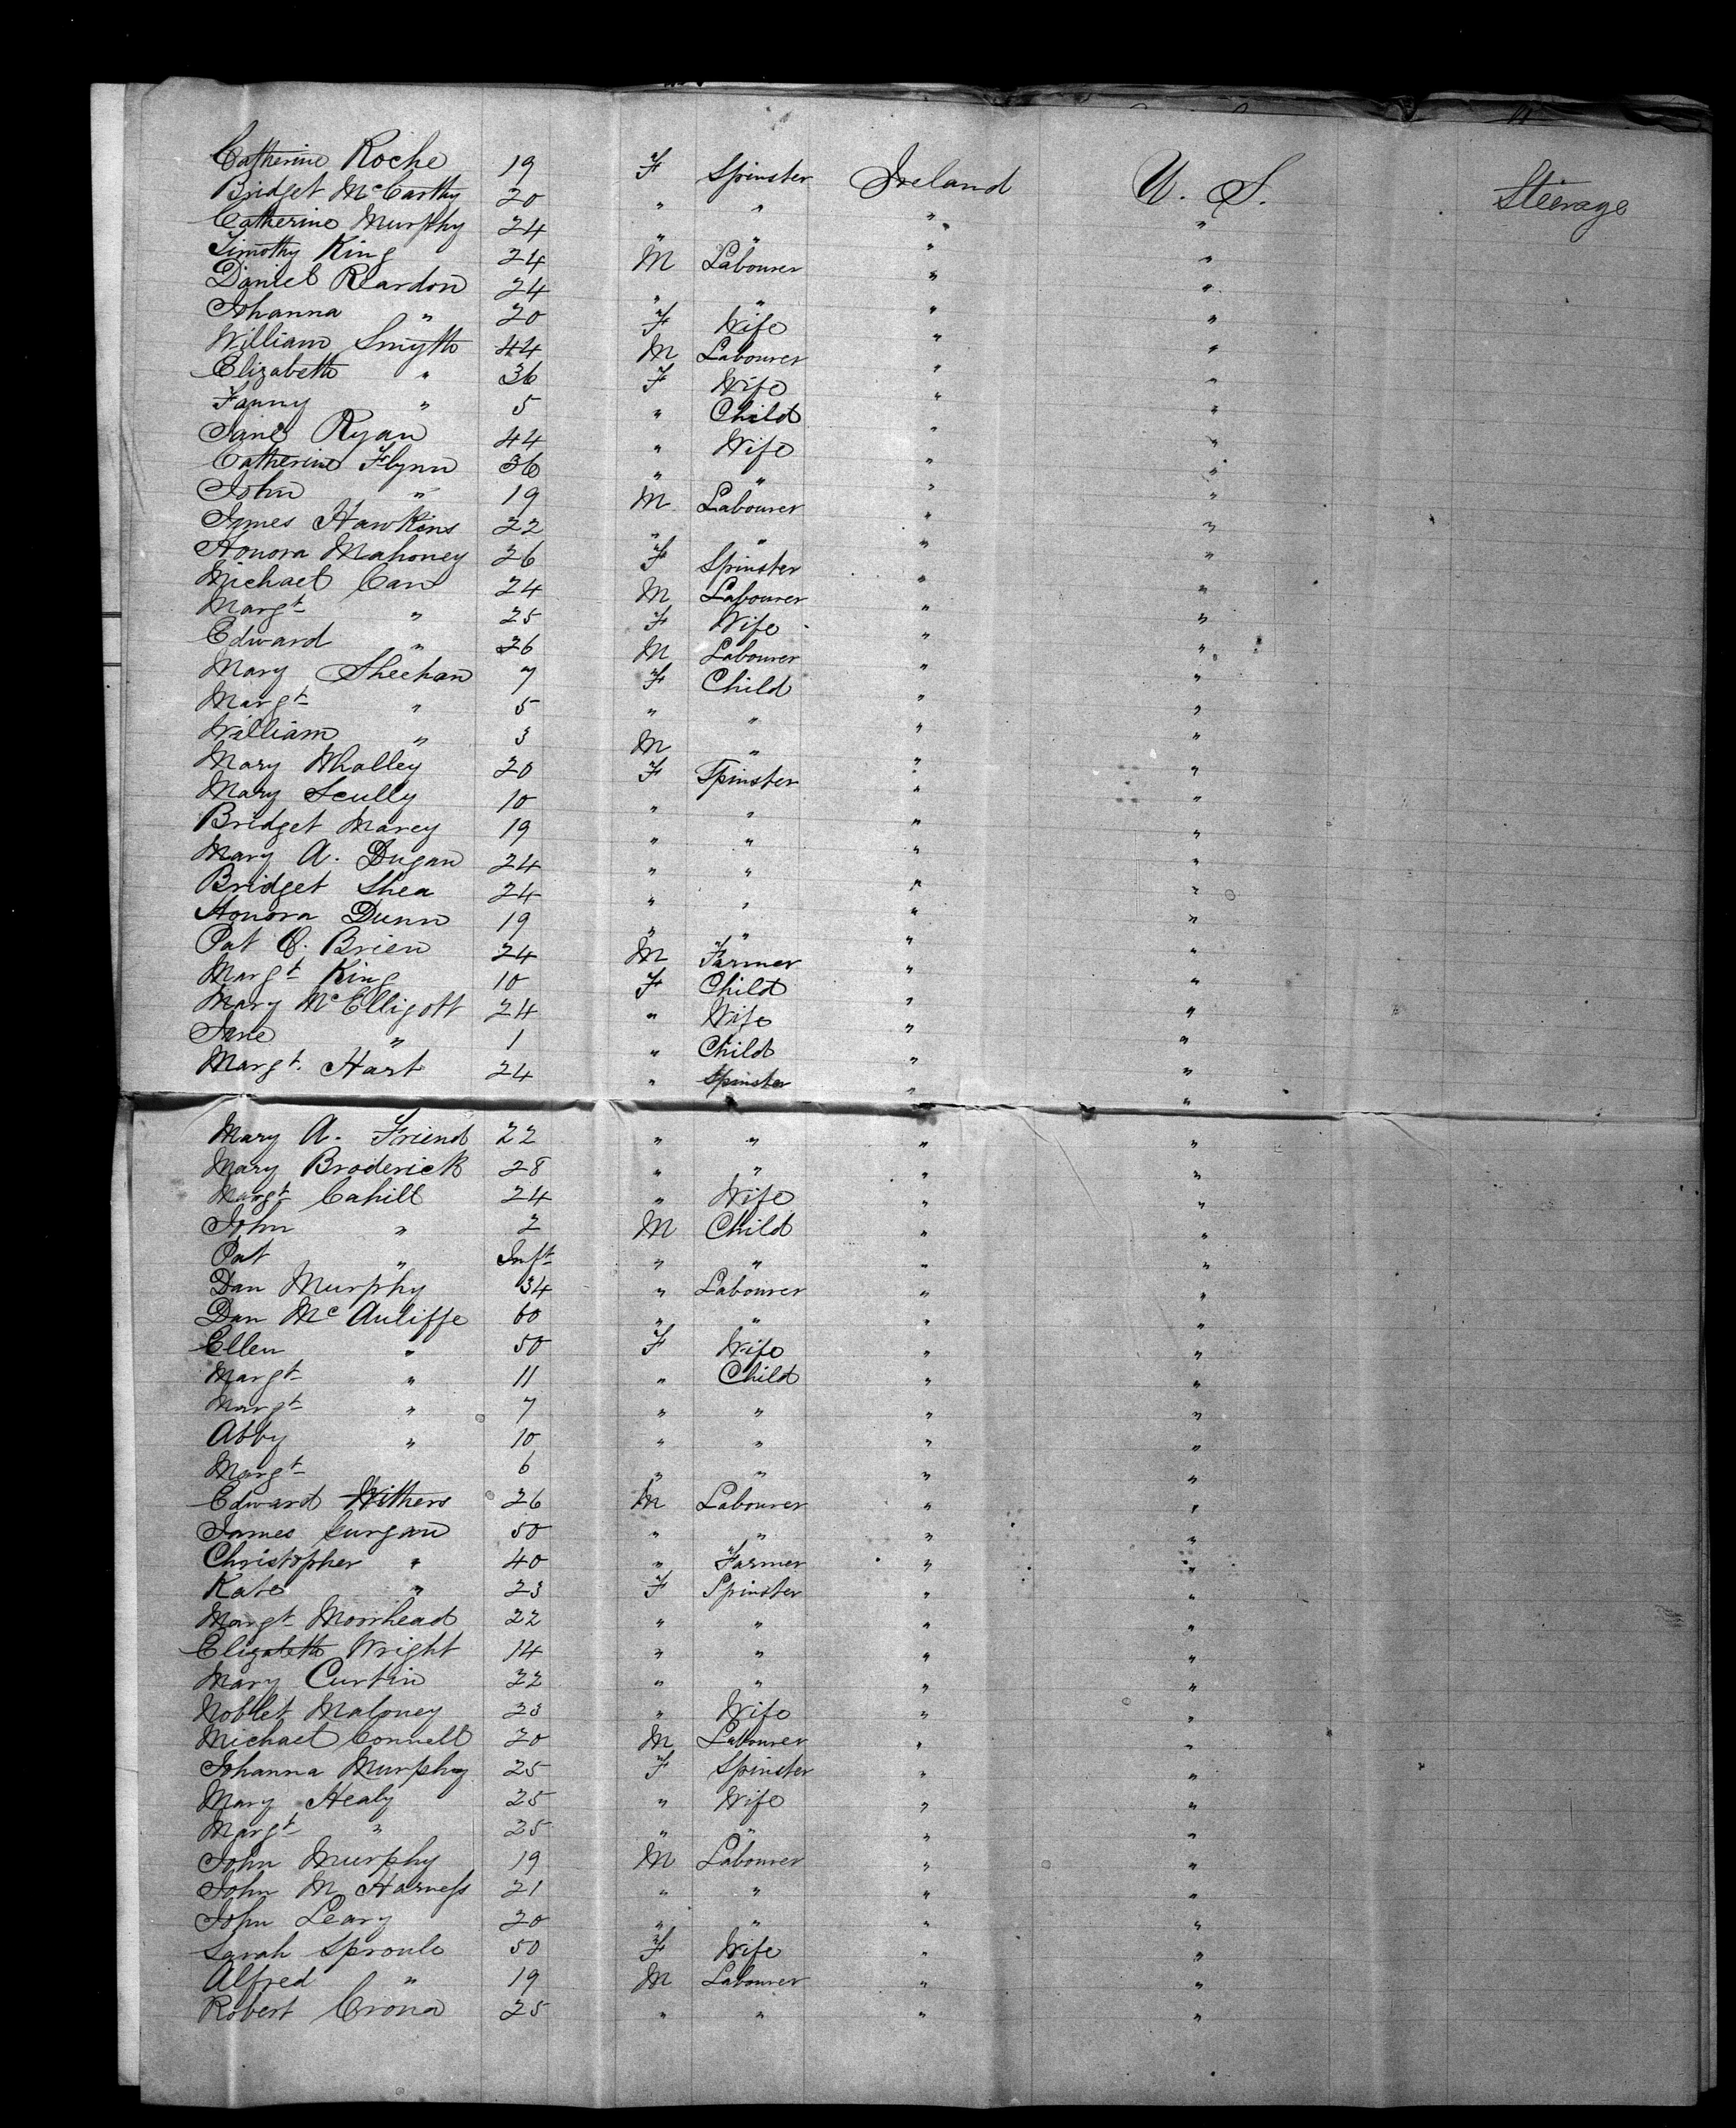 Catherine Roche 19 F Spinster Ireland U. S. Steerage
Bridget McCarthy 20 " " " "
Catherine Murphy 24 " " " "
Timothy King 24 M Labourer " "
Daniel Reardon 24 " " " "
Johanna " 20 F Wife " "
William Smyth 44 M Labourer " "
Elizabeth " 36 F Wife " "
Fanny " 5 " Child " "
Jane Ryan 44 " Wife " "
Catherine Flynn 36 " " " "
John " 19 M Labourer " "
James Hawkins 22 " " " "
Honora Mahoney 26 F Spinster " "
Michael Carr 24 M Labourer " "
Margt " 25 F Wife " "
Edward " 26 M Labourer " "
Mary Sheehan 7 F Child " "
Margt " 5 " " " "
William " 3 M " " "
Mary Whalley 20 F Spinster " "
Mary Scully 10 " " " "
Bridget Marey 19 " " " "
Mary A. Dugan 24 " " " "
Bridget Shea 24 " " " "
Honora Dunn 19 " " " "
Pat O. Brien 24 M Farmer " "
Margt King 10 F Child " "
Mary McElligott 24 " Wife " "
Jane " 1 " Child " "
Margt. Hart 24 " Spinster " "
Mary A. Friend 22 " " " "
Mary Broderick 28 " " " "
Margt Cahill 24 " Wife " "
John " 2 M Child " "
Pat " Inft " " " "
Dan Murphy 34 " Labourer " "
Dan Mc Auliffe 60 " " " "
Ellen " 50 F Wife " "
Margt " 11 " Child " "
Margt " 7 " " " "
Abby " 10 " " " "
Margt " 6 " " " "
Edward Withers 26 M Labourer " "
James Gurgan 50 " " " "
Christopher " 40 " Farmer " "
Kate " 23 F Spinster " "
Margt Morrhead 22 " " " "
Elizabeth Wright 14 " " " "
Mary Curtin 22 " " " "
Noblet Maloney 23 " Wife " "
Michael Connell 20 M Labourer " "
Johanna Murphy 25 F Spinster " "
Mary Healy 25 " Wife " "
Margt " 25 " " " "
John Murphy 19 M Labourer " "
John M Harness 21 " " " "
John Leary 20 " " " "
Sarah Sproule 50 F Wife " "
Alfred " 19 M Labourer " "
Robert Crona 25 " " " "